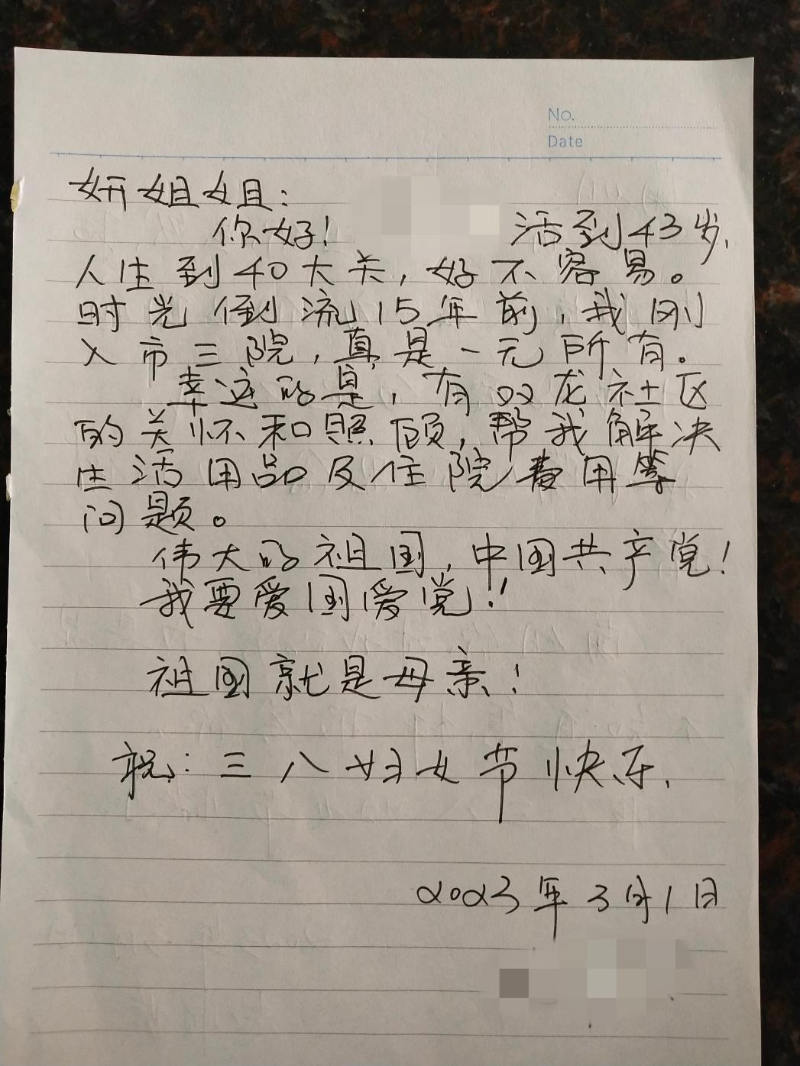 No.
Date
妍姐姐：
你好！ 活到43岁，
人生到40大关，好不容易。
时光倒流15年前，我刚
入市三院，真是一无所有。
幸运的是，有双龙社区
的关怀和照顾，帮我解决
生活用品及住院费用等
问题。
伟大的祖国，中国共产党！
我要爱国爱党！！
祖国就是母亲！
祝：三八妇女节快乐，
2023年3月1日